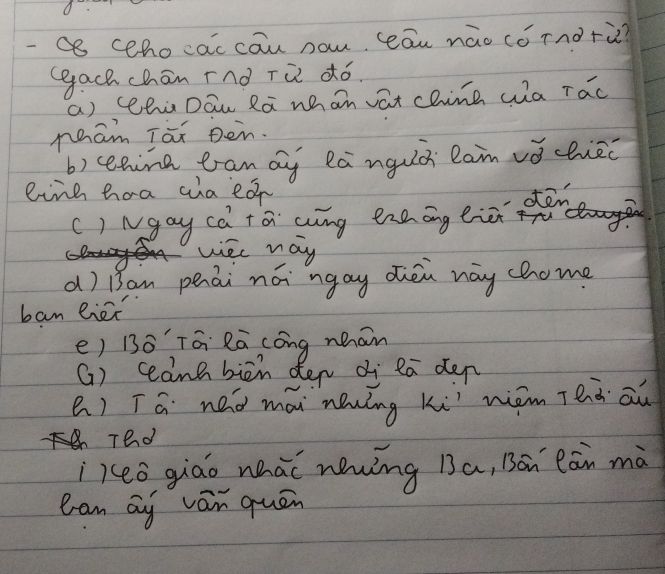 - Cho các câu sau. Câu nào có trợ từ?
Gạch chân trợ từ đó.
a) Chị Dậu là nhân vật chính của Tác
phẩm Tắt Đèn.
b) Chính bạn ấy là người làm vỡ chiếc
bình hoa của lớp
c) Ngay cả tôi cũng không biết đến
việc này
d) Bạn phải nói ngay điều này cho mẹ
bạn biết
e) Bố Tôi là công nhân
G) Cảnh biển đẹp ơi là đẹp
h) Tôi nhớ mãi những kỉ niệm Thời ấu
Thơ
i) Cô giáo nhắc những Ba, Bốn lần mà
bạn ấy vẫn quên